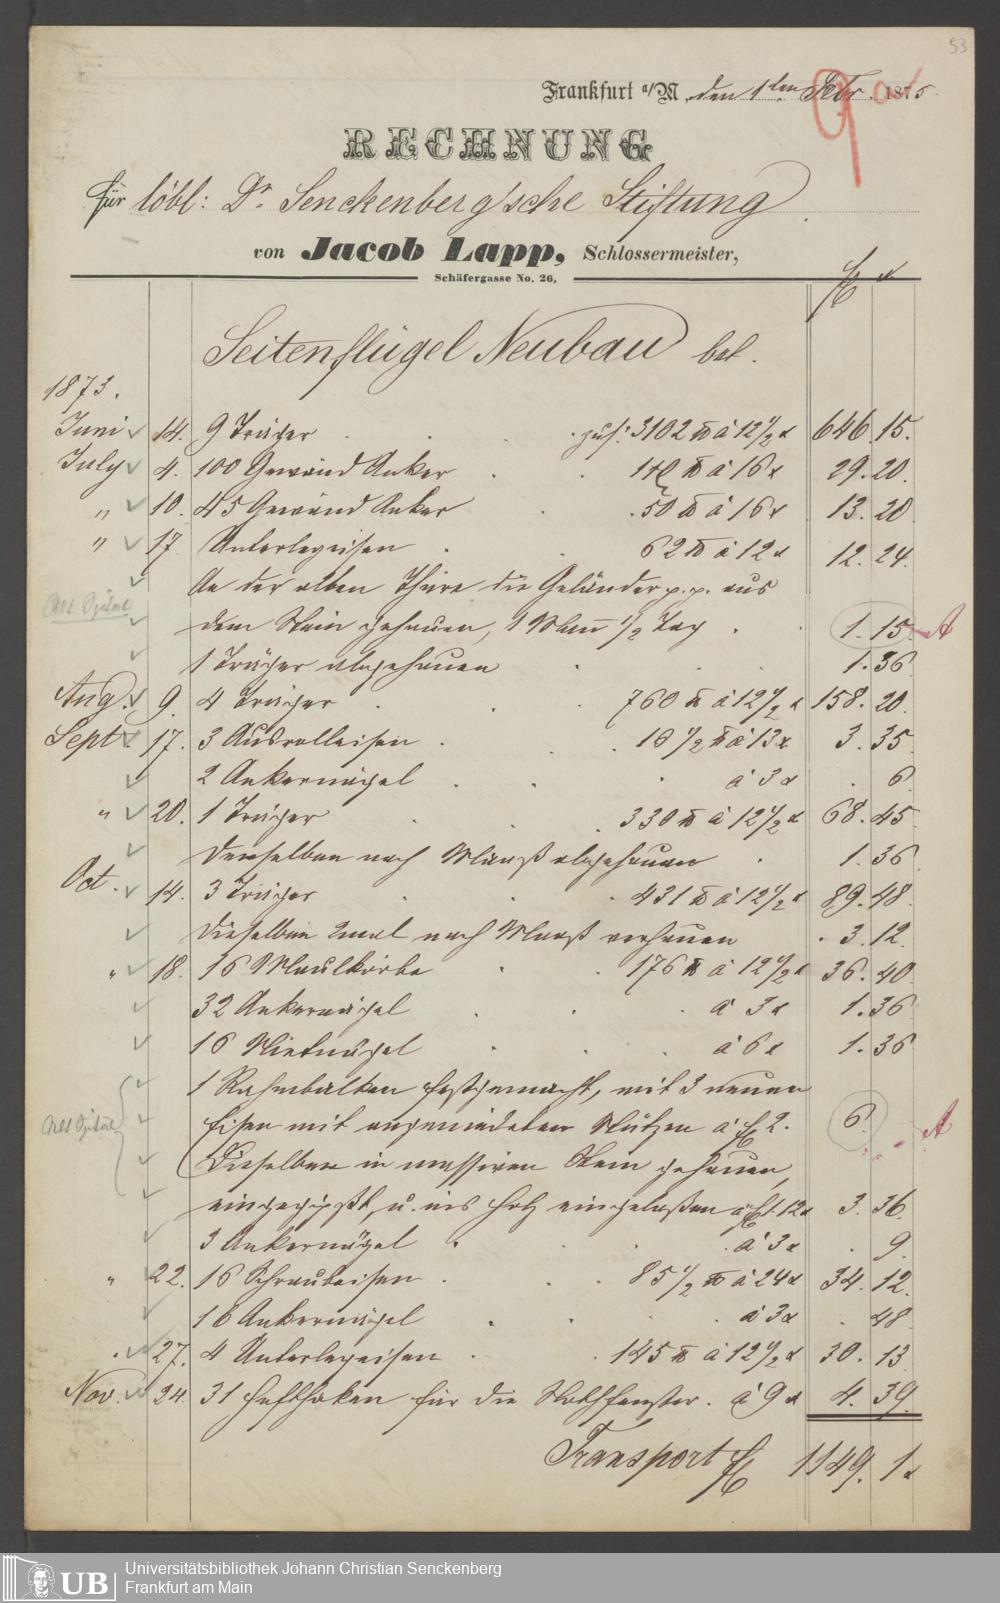 53
Frankfurt a/M, den 1ten Febr. 1875
RECHNUNG
für löbl: Dr. Senckenberg'sche Stiftung
von Jacob Lapp, Schlossermeister,
Schäfergasse No. 26,
fl x
Seitenflügel Neubau bet.
1873.
Juni 14. 9 Träger zus: 3102 ℔ à 12 1/2 x 646. 15.
July 4. 100 Gewänd Anker 110 ℔ à 16 x 29. 20.
" 10. 45 Gewänd Anker 50 ℔ à 16 x 13. 20
" 17 Unterlegeisen 62 ℔ à 12 x 12. 24.
An der alten Thüre die Geländer p.p. aus
Alt Spital
dem Stein gehauen, 1 Mann 1/2 Tag 1. 15. A
1 Träger abgehauen 1. 36
Aug. 9. 4 Träger 760 ℔ à 12 1/2 x 158. 20.
Sept. 17. 3 Ausrolleisen 16 1/2 ℔ à 13 x 3. 35
2 Ankernägel à 3 x 6
" 20. 1 Träger 330 ℔ à 12 1/2 x 68. 45
Denselben nach Maaß abgehauen 1. 36
Oct. 14. 3 Träger 431 ℔ à 12 1/2 x 89. 48.
Dieselben 2mal nach Maaß verhauen 3. 12.
" 18. 16 Maulkörbe 176 ℔ à 12 1/2 x 36. 40
32 Ankernägel à 3 x 1. 36
16 Nietnägel à 6 x 1. 36
1 Rahmbalken festgemacht, mit 3 neuen
Alt Spital
Eisen mit angenieteten Stützen à fl 2. 6. A
Dieselben in massiven Stein gehauen,
eingegipßt, u. ins Holz eingelaßen à fl 1. 12 x 3. 36.
3 Ankernägel à 3 x 9.
" 22. 16 Schraubeisen 85 1/2 ℔ à 24 x 34. 12.
16 Ankernägel à 3 x 48
" 27. 4 Unterlegeisen 145 ℔ à 12 1/2 x 30. 13
Nov. 24. 31 Hefthaken für die Nothfenster. à 9 x 4. 39.
Transport fl 1149. 1 x
UB
Universitätsbibliothek Johann Christian Senckenberg
Frankfurt am Main